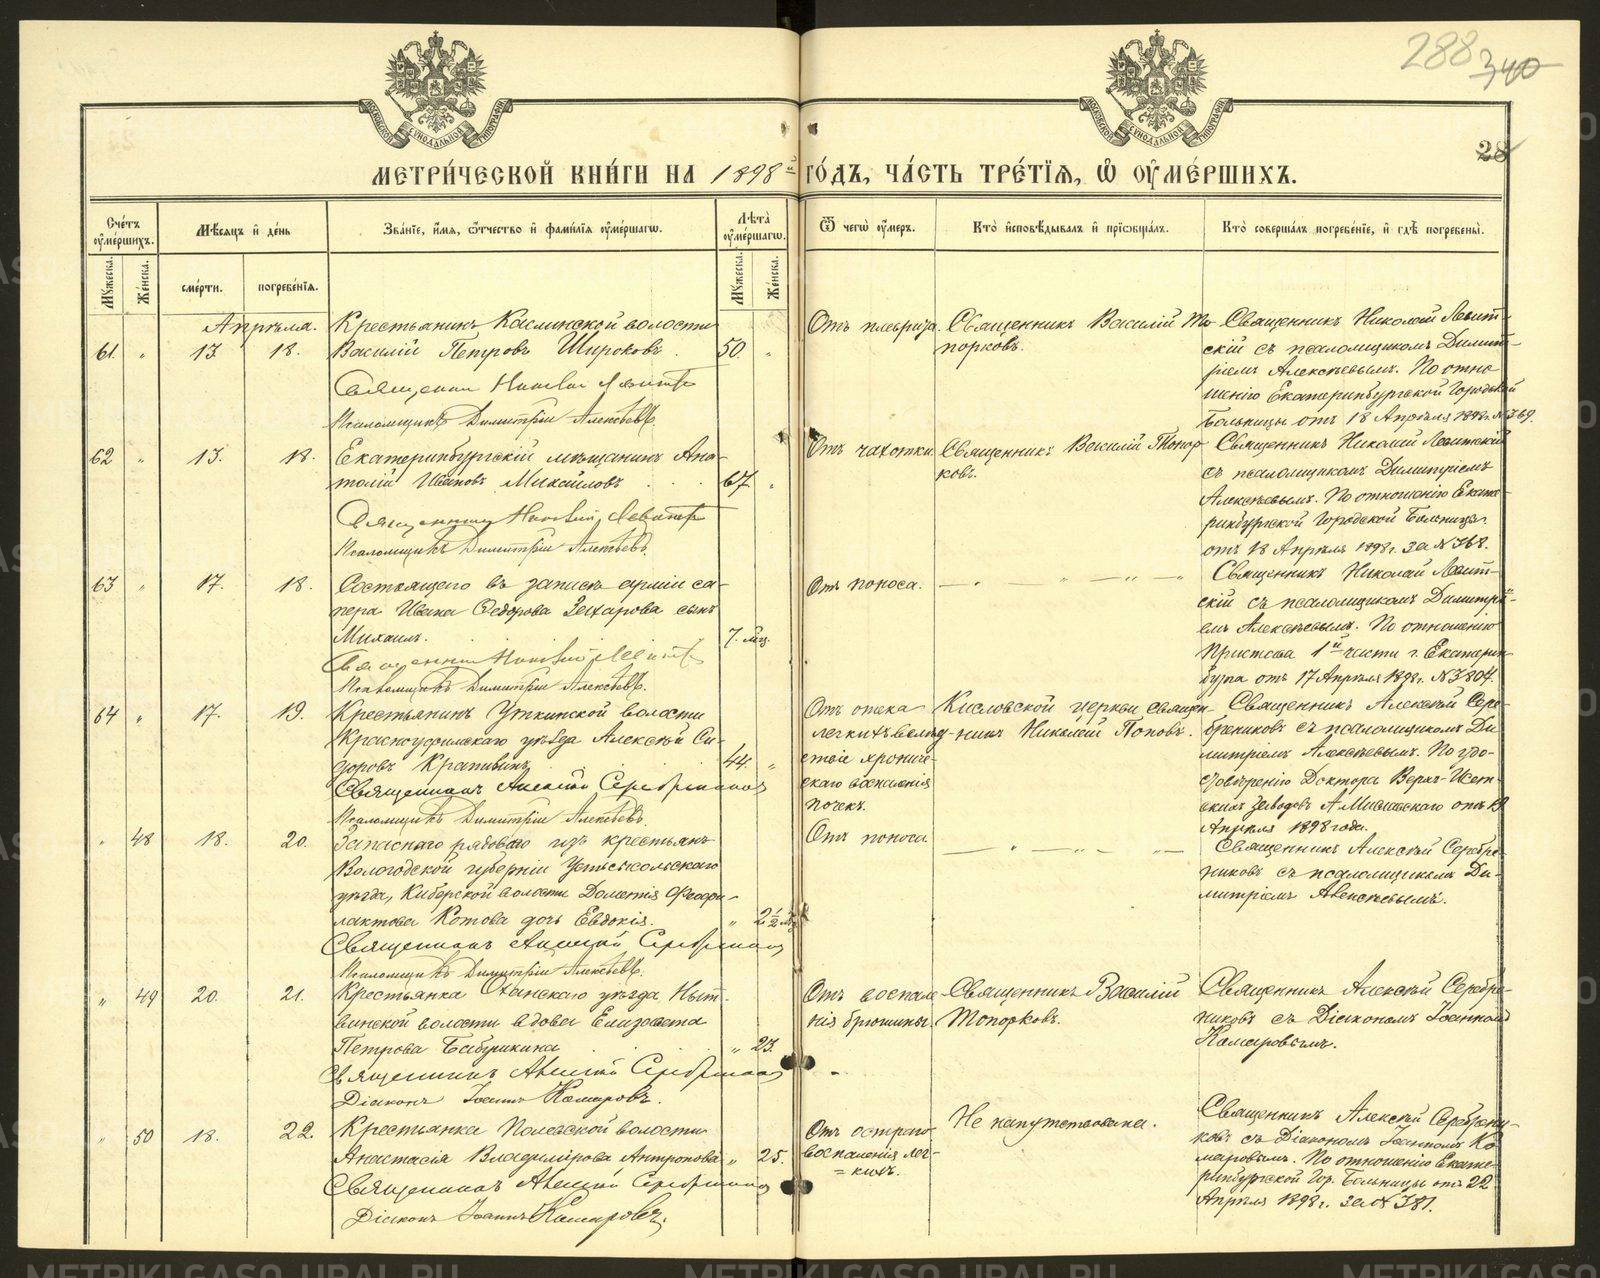 288 340
МОСКОВСКОЙ СѴНОДАЛЬНОЙ ТИПОГРАФІИ
МОСКОВСКОЙ СѴНОДАЛЬНОЙ ТИПОГРАФІИ
28
МЕТРИ́ЧЕСКОЙ КНИ́ГИ НА 1898й ГО́ДЪ, ЧА́СТЬ ТРЕ́ТІѦ, Ѡ҆ ОУ҆МЕ́РШИХЪ.
Сче́тъ оу҆ме́ршихъ.
Мѣ́сяцъ и҆ де́нь
Зва́нїе, и҆́мѧ, ѻ҆́тчество и҆ фами́лїѧ оу҆ме́ршагѡ.
Лѣ́та оу҆ме́ршагѡ.
Ѿ чегѡ̀ оу҆́меръ.
Кто̀ и҆сповѣ́дывалъ и҆ прїѡбща́лъ.
Кто̀ соверша́лъ погребе́нїе, и҆ гдѣ̀ погребены̀.
Мꙋ́жеска. Же́нска. сме́рти. погребе́нїѧ. Мꙋ́жеска. Же́нска.
Апрѣля.
61. " 13. 18.
Крестьянинъ Каслинской волости
Василій Петровъ Широковъ. 50. "
Священникъ Николай Левитскій
Псаломщикъ Димитрій Алексѣевъ.
Отъ плеврита.
Священникъ Василій То-
порковъ.
Священникъ Николай Левит-
скій съ псаломщикомъ Димит-
ріемъ Алексѣевымъ. По отно-
шенію Екатеринбургской Городской
Больницы отъ 18 Апрѣля 1898 г. № 369.
62 " 13. 18.
Екатеринбургскій мѣщанинъ Ана-
толій Ивановъ Михайловъ 67. "
Священникъ Николай Левитскій
Псаломщикъ Димитрій Алексѣевъ.
Отъ чахотки.
Священникъ Василій Топор-
ковъ.
Священникъ Николай Левитскій
съ псаломщикомъ Димитріемъ
Алексѣевымъ. По отношенію Екате-
ринбургской Городской Больницы
отъ 18 Апрѣля 1898 г. за № 368.
63 " 17. 18.
Состоящаго въ запасѣ арміи са-
пера Ивана Ѳедорова Захарова сынъ
Михаилъ. 7. мѣс.
Священникъ Николай Левитскій
Псаломщикъ Димитрій Алексѣевъ.
Отъ поноса.
Священникъ Николай Левит-
скій съ псаломщикомъ Димитрі-
емъ Алексѣевымъ. По отношенію
Пристава 1й части г. Екатерин-
бурга отъ 17 Апрѣля 1898 г. № 3804.
64 " 17. 19.
Крестьянинъ Уткинской волости
Красноуфимскаго уѣзда Алексѣй Си-
доровъ Крапивинъ 44. "
Священникъ Алексій Серебренниковъ
Псаломщикъ Димитрій Алексѣевъ.
Отъ отека
легкихъ вслѣд-
ствіе хрониче-
скаго воспаленія
почекъ.
Кисловской церкви священ-
никъ Николай Поповъ.
Священникъ Алексѣй Сере-
брениковъ съ псаломщикомъ Ди-
митріемъ Алексѣевымъ. По удо-
стовѣренію Доктора Верхъ-Исет-
скихъ заводовъ отъ 19
Апрѣля 1898 года.
" 48 18. 20.
Запаснаго рядоваго изъ крестьянъ
Вологодской губерніи Устьсысольскаго
уѣзда, Киберской волости Дометія Ѳеофи-
лактова Котова дочь Евдокія. " 2 1/2 м.
Священникъ Алексій Серебренниковъ
Псаломщикъ Димитрій Алексѣевъ.
Отъ поноса.
Священникъ Алексѣй Серебре-
никовъ съ псаломщикомъ Ди-
митріемъ Алексѣевымъ.
" 49 20. 21.
Крестьянка Оханскаго уѣзда Ныт-
винской волости вдова Елизавета
Петрова Бабушкина " 23.
Священникъ Алексій Серебренниковъ
Діаконъ Іоаннъ Комаровъ.
Отъ воспале-
нія брюшины.
Священникъ Василій
Топорковъ.
Священникъ Алексѣй Серебре-
никовъ съ Діакономъ Іоанномъ
Комаровымъ.
" 50 18. 22.
Крестьянка Полевской волости
Анастасія Владимірова Антропова " 25.
Священникъ Алексій Серебренниковъ
Діаконъ Іоаннъ Комаровъ.
Отъ остраго
воспаленія лег-
кихъ.
Не напутствована.
Священникъ Алексѣй Серебрени-
ковъ съ Діакономъ Іоанномъ Ко-
маровымъ. По отношенію Екате-
ринбургской Гор. Больницы отъ 22
Апрѣля 1898 г. за № 381.
METRIKI.GASO-URAL.RU
METRIKI.GASO-URAL.RU